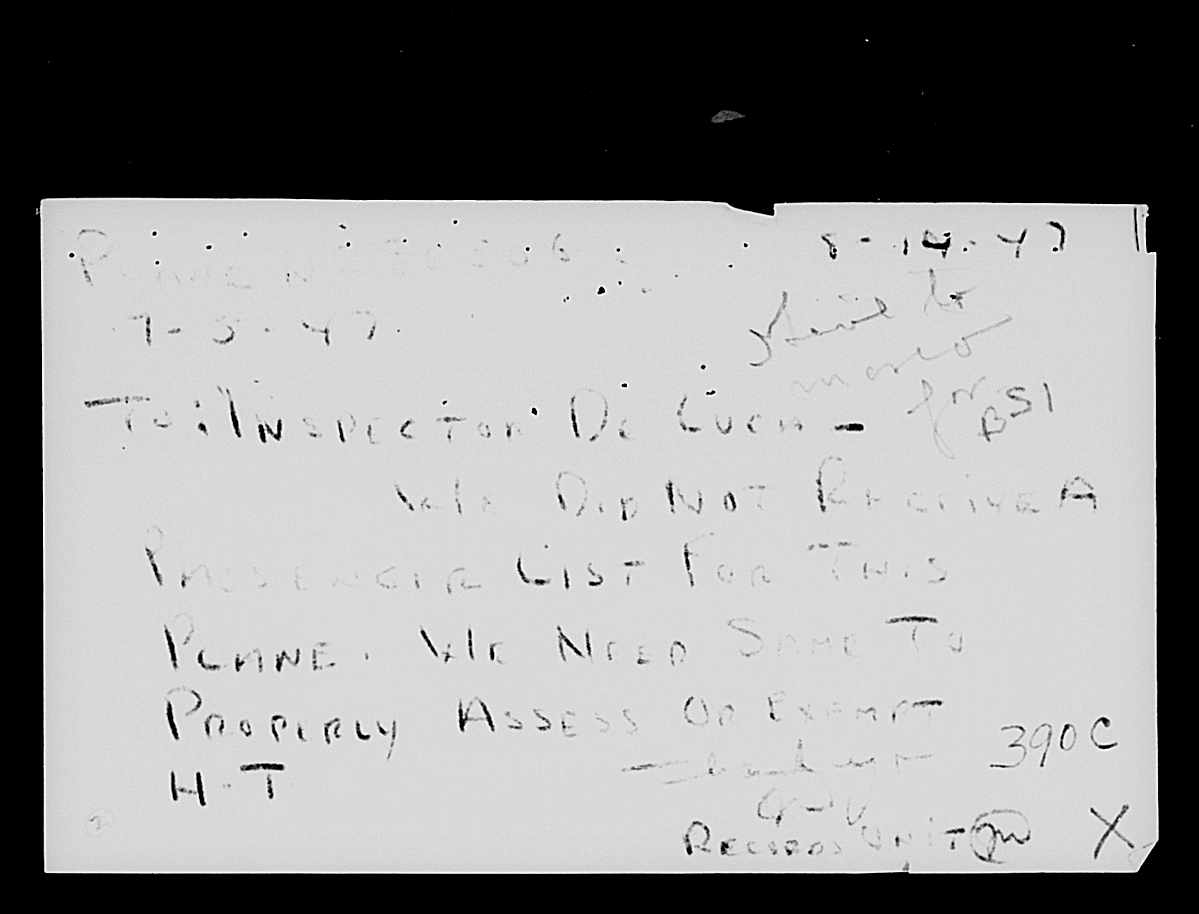 PLANE N 8-14-47
7-5-47
TO: INSPECTOR DE LUCA -
WE DID NOT RECEIVE A
PASSENGER LIST FOR THIS
PLANE. WE NEED SAME TO
PROPERLY ASSESS OR EXEMPT
H-T
390C
RECORDS UNIT X